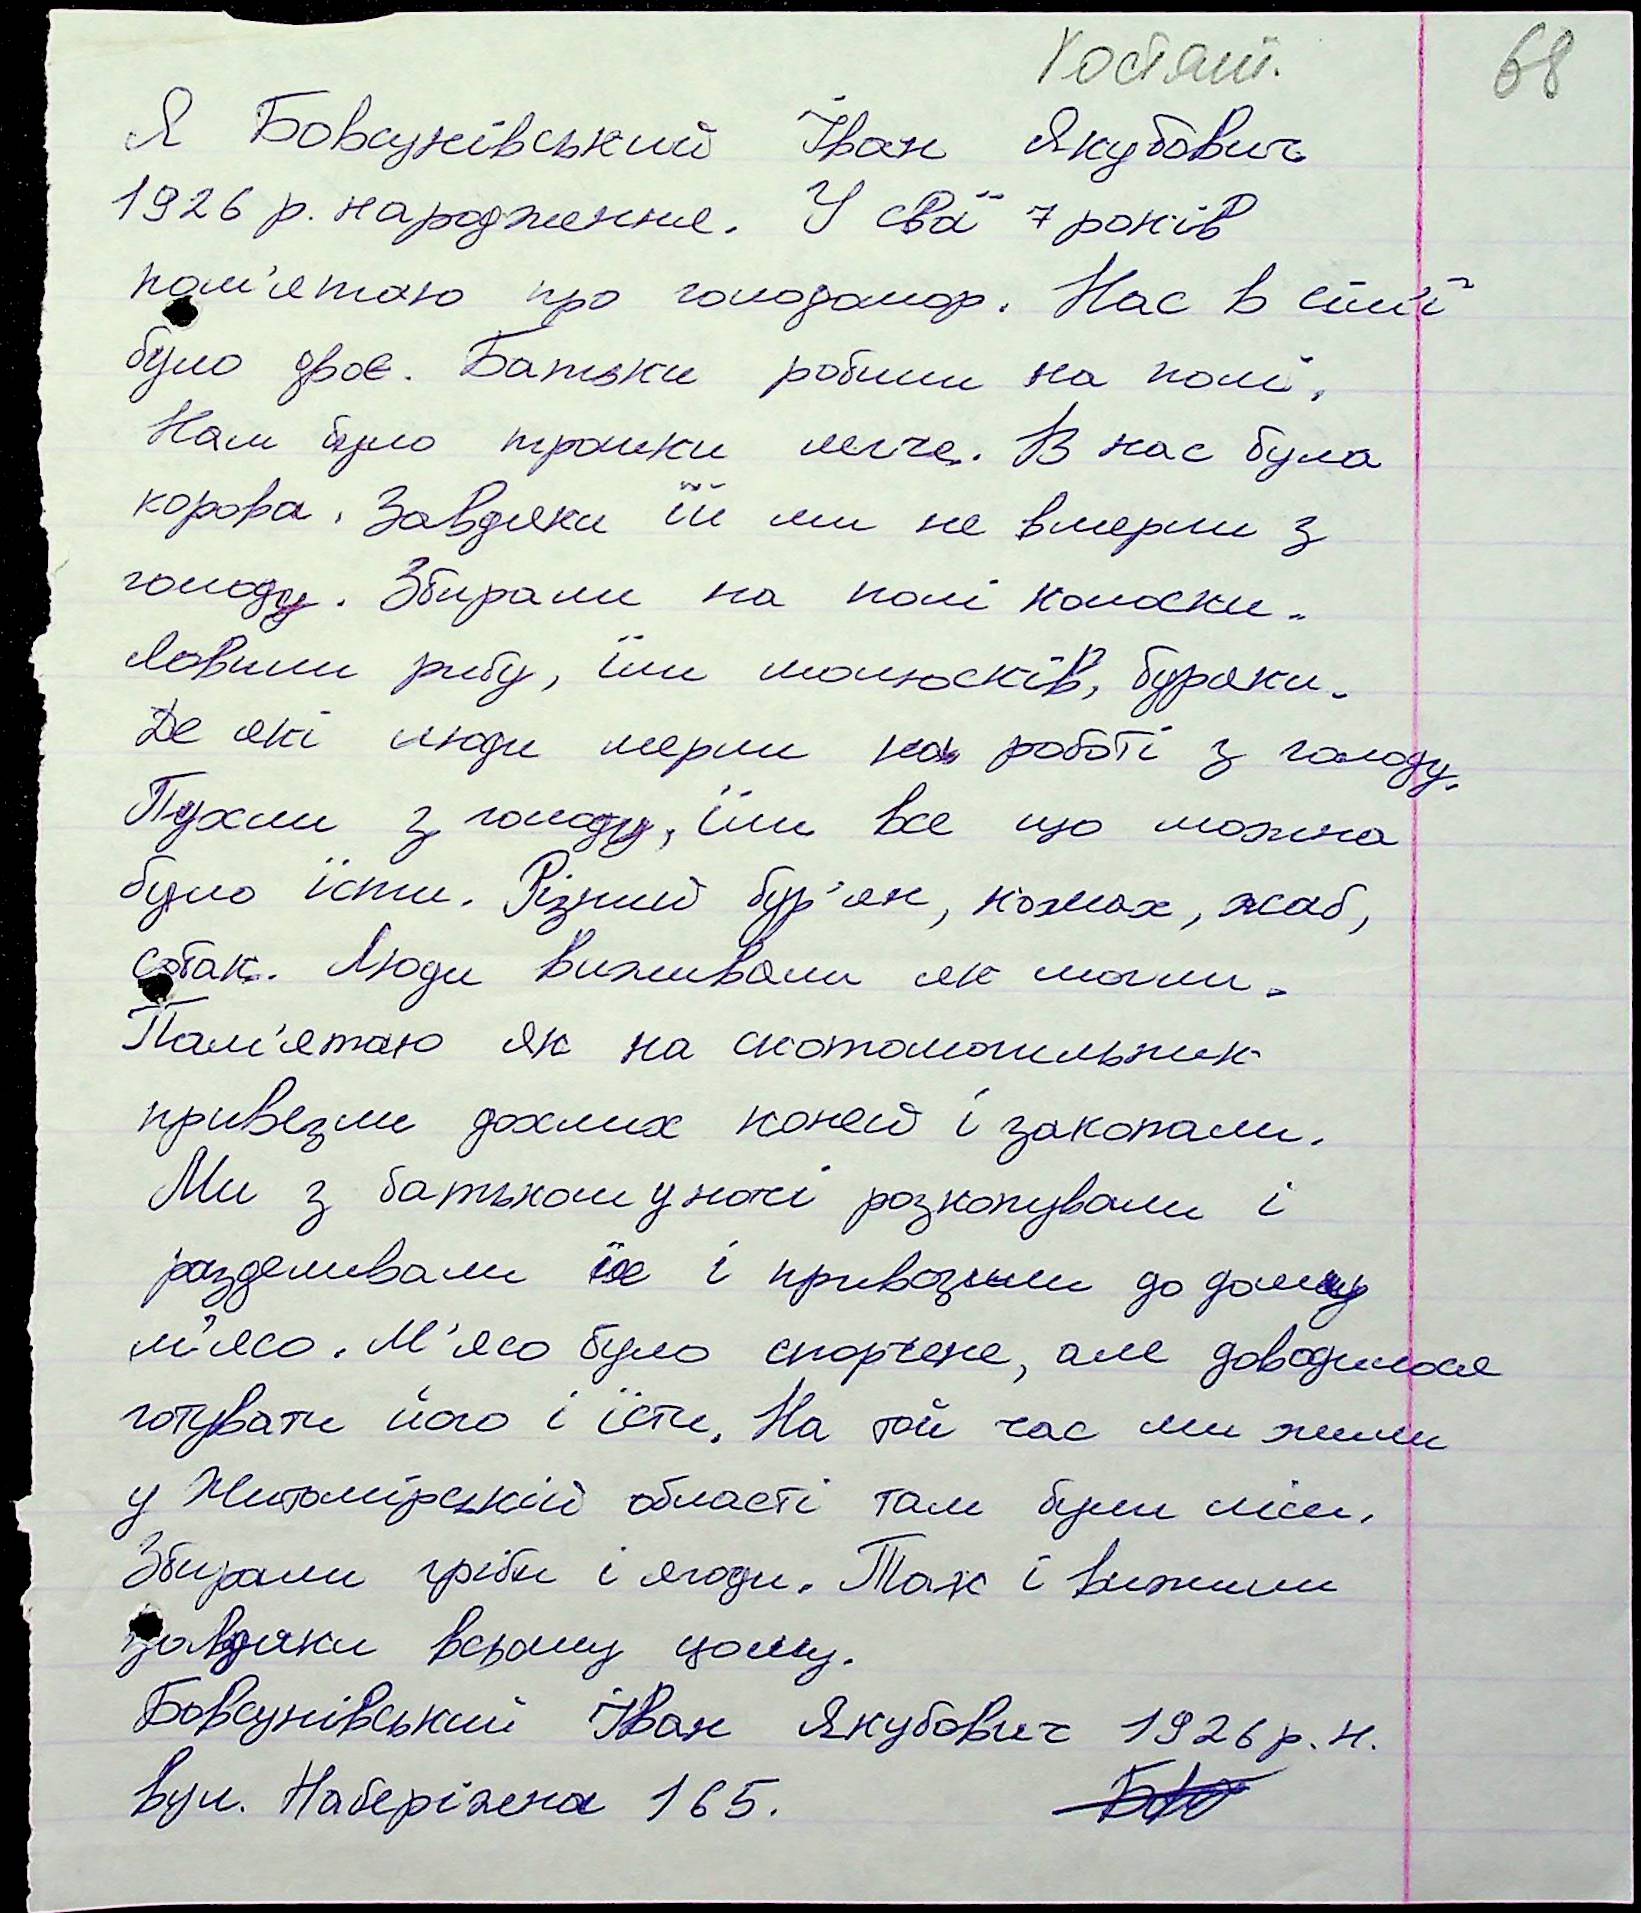 68
Я Бовсунівський Іван Якубович
1926 р. народження. У свої 7 років
пам'ятаю про голодомор. Нас в сім'ї
було двоє. Батьки робили на полі.
Нам було трошки легче. В нас була
корова. Завдяки їй ми не вмерли з
голоду. Збирали на полі колоски.
Ловили рибу, їли молюсків, буряки.
Де які люди мерли на роботі з голоду.
Пухли з голоду, їли все що можна
було їсти. Різний бур'ян, комах, жаб,
собак. Люди виживали як могли.
Пам'ятаю як на скотомогильник
привезли дохлих коней і закопали.
Ми з батьком уночі розкопували і
разделивали їх і привозили до дому
м'ясо. М'ясо було спорчене, але доводилося
готувати його і їсти. На той час ми жили
у Житомирській області там були ліси.
Збирали гріби і ягоди. Так і вижили
завдяки всьому цьому.
Бовсунівський Іван Якубович 1926 р. н.
вул. Наберіжна 165.